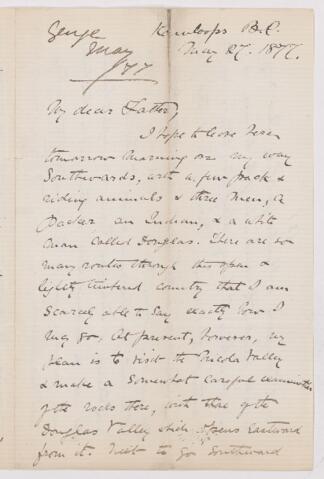 George Kamloops B.C.
May May 27. 1877.
/77
My dear Father,
I hope to leave here
tomorrow morning on my way
Southwards, with a few pack &
riding animals & three men, a
Packer an Indian, & a white
man called Douglas. There are so
many routes through this open &
lightly timbered country that I am
scarcely able to say exactly how I
may go, At present, however, my
plan is to visit the Nicola Valley
& make a somewhat careful examination
of the rocks there, with those of the
Douglas Valley which opens Eastward
from it. Next to go Southward